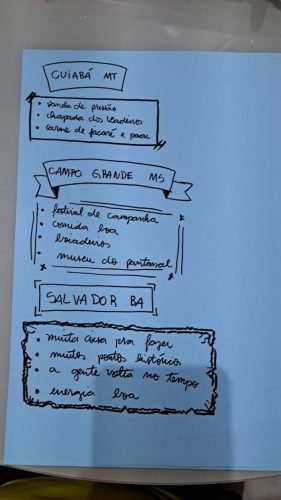 CUIABÁ MT
• vanda de pressão
• chapada dos veadeiros
• carne de jacaré e pacu
CAMPO GRANDE MS
• festival de campanha
• comida boa
• boiadeiros
• museu do pantanal
SALVADOR BA
• muita coisa pra fazer
• muitos pontos históricos
• a gente volta no tempo
• energia boa